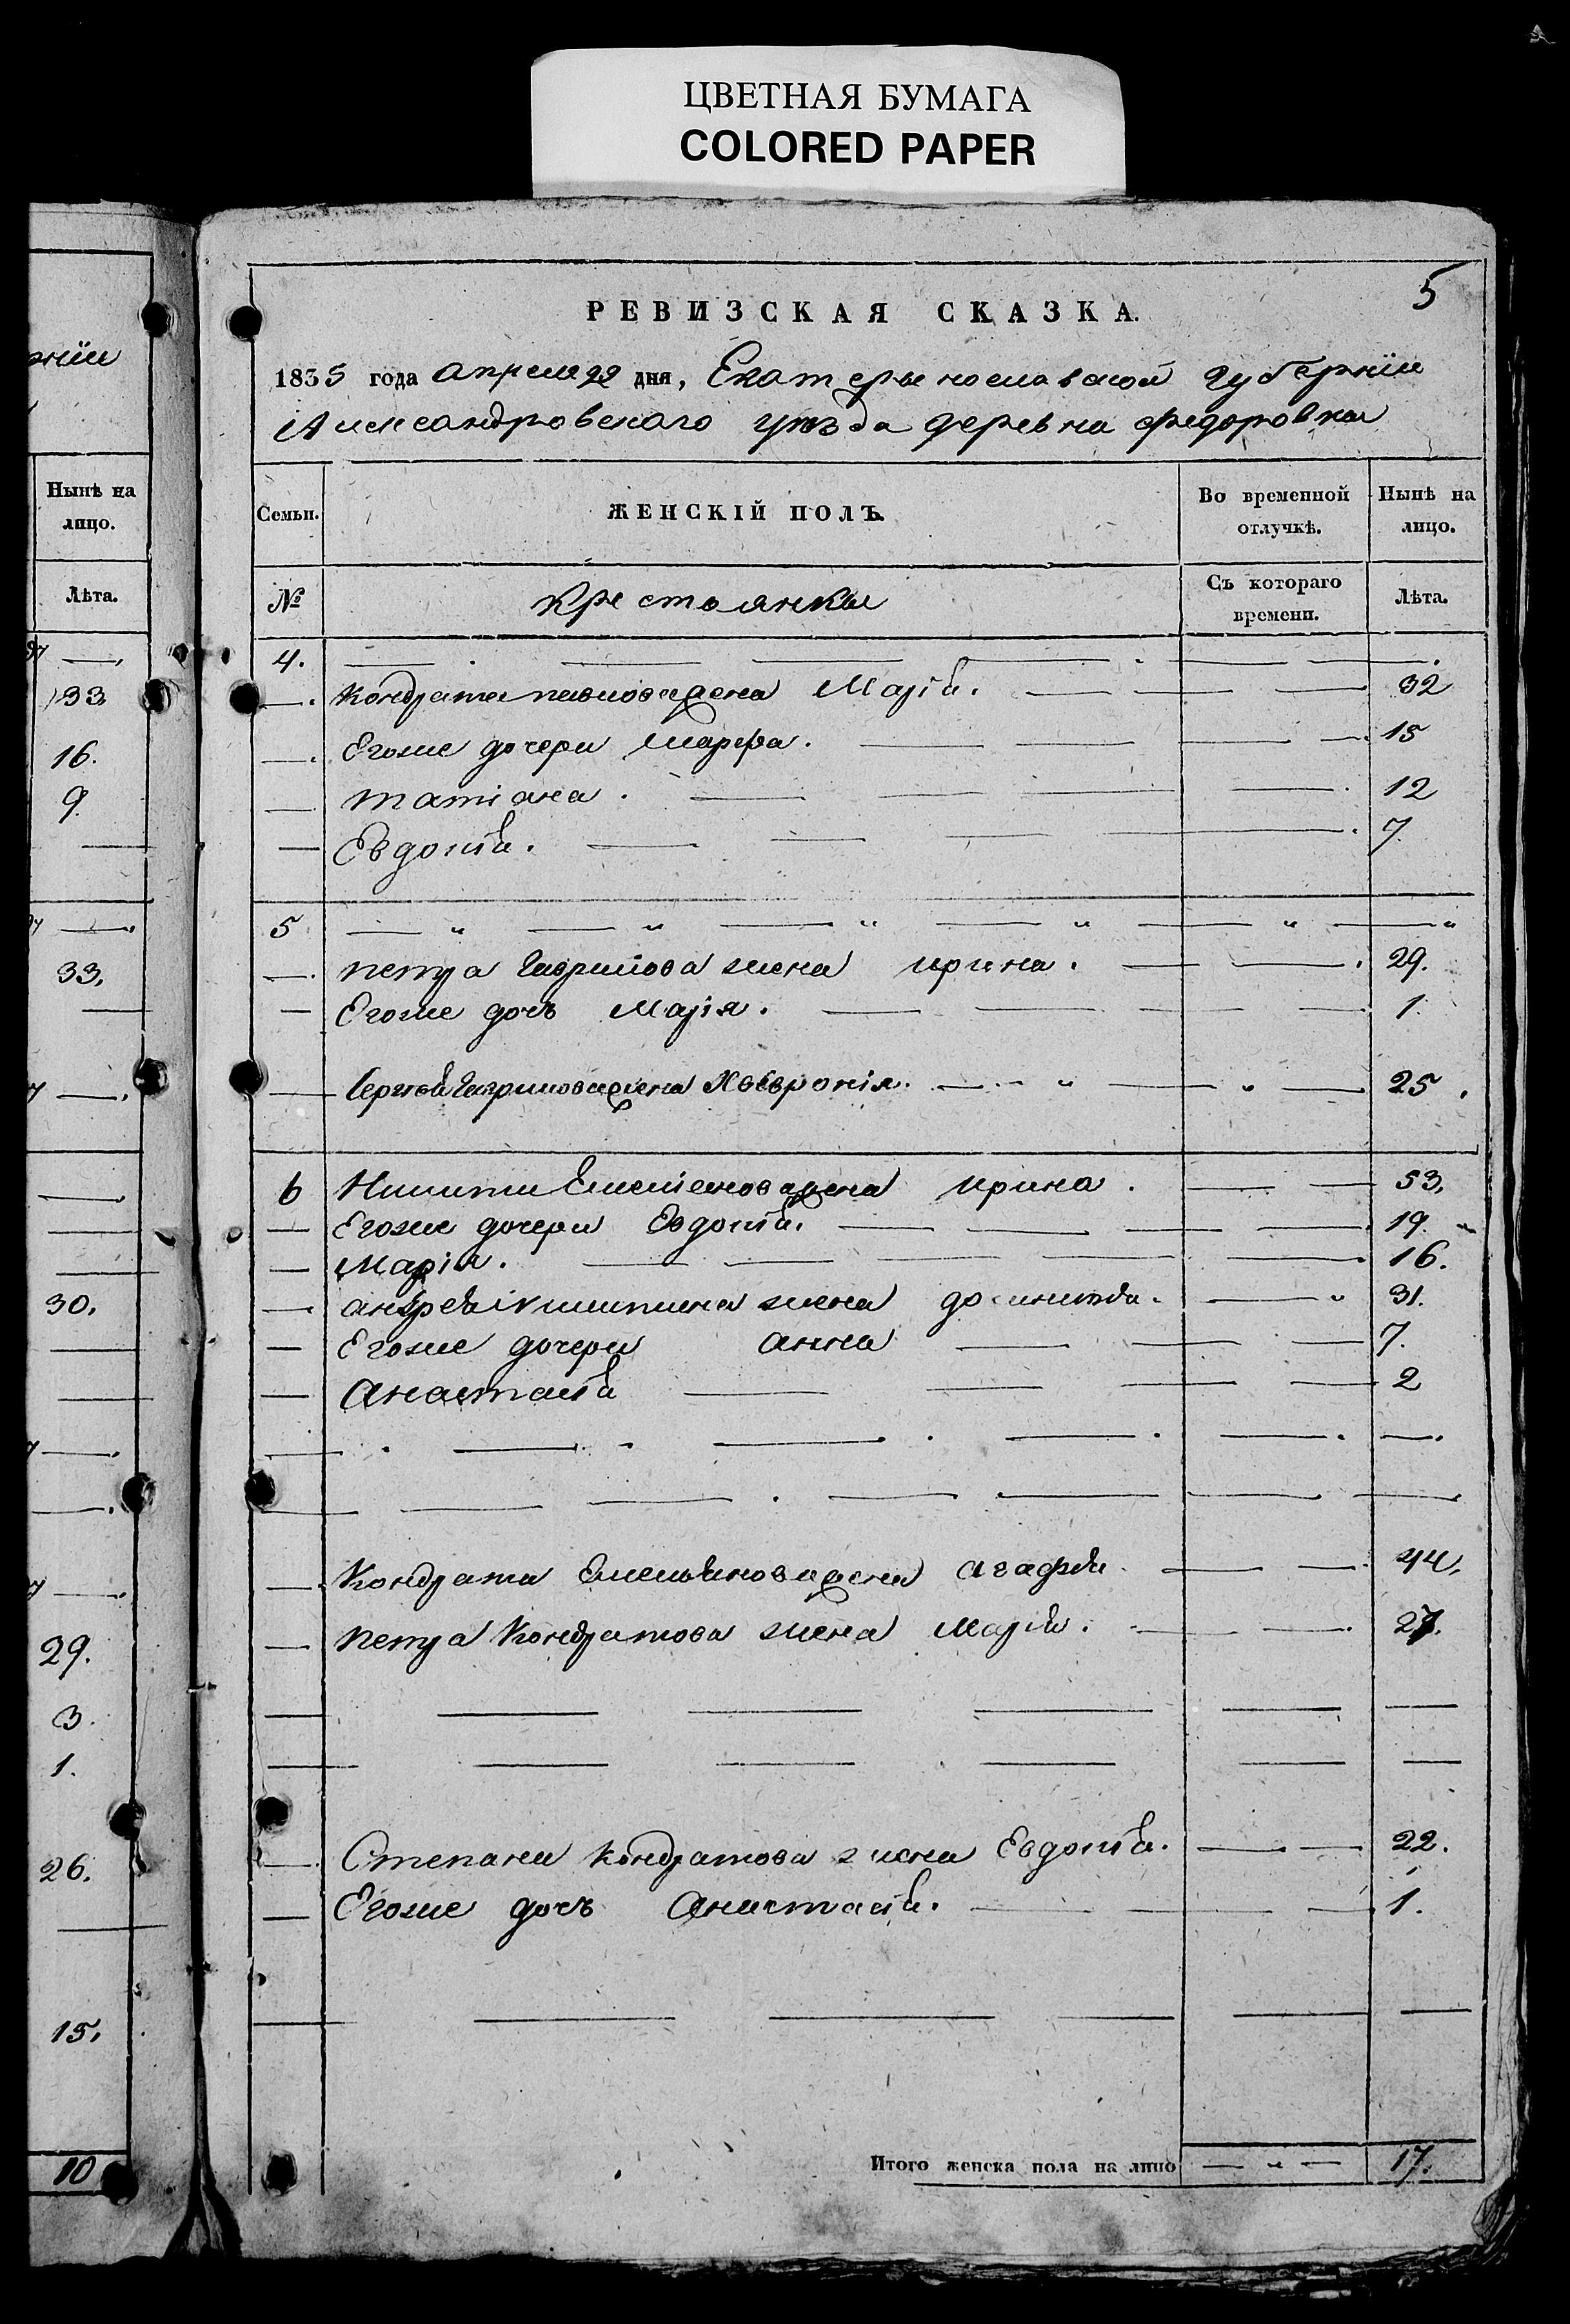 ЦВЕТНАЯ БУМАГА
COLORED PAPER
5
РЕВИЗСКАЯ СКАЗКА.
1835 года апреля 22 дня, Екатериносла­вской губернiи
Александровского уезда деревни федоровки
Нынѣ на лицо.
Лѣта.
33
16.
9.
33.
30.
29.
3.
1.
26.
15.
10
Семьи. ЖЕНСКІЙ ПОЛЪ. Во временной отлучкѣ. Нынѣ на лицо.
№ Крестьянки Съ котораго времени. Лѣта.
4.
Кондрата павлова жена Марiя. 32
Егоже дочери Марфа. 15
татiана. 12
Евдокiя. 7.
5
петра Гаврилова жена ирина. 29.
Егоже дочь Марiя. 1.
Сергея Гаврилова жена Хеврония. 25.
6 Никиты Емелiанова жена ирина. 53.
Егоже дочери Евдокiя. 19.
Марiя. 16.
андрея Никитина жена 31.
Егоже дочери анна 7.
Анастасiя 2
Кондрата Емельянова жена агафiя. 44.
петра Кондратова жена Марiя. 27.
Степана Кондратова жена Евдокiя. 22.
Егоже дочь Анастасiя. 1.
Итого женска пола на лицо 17.